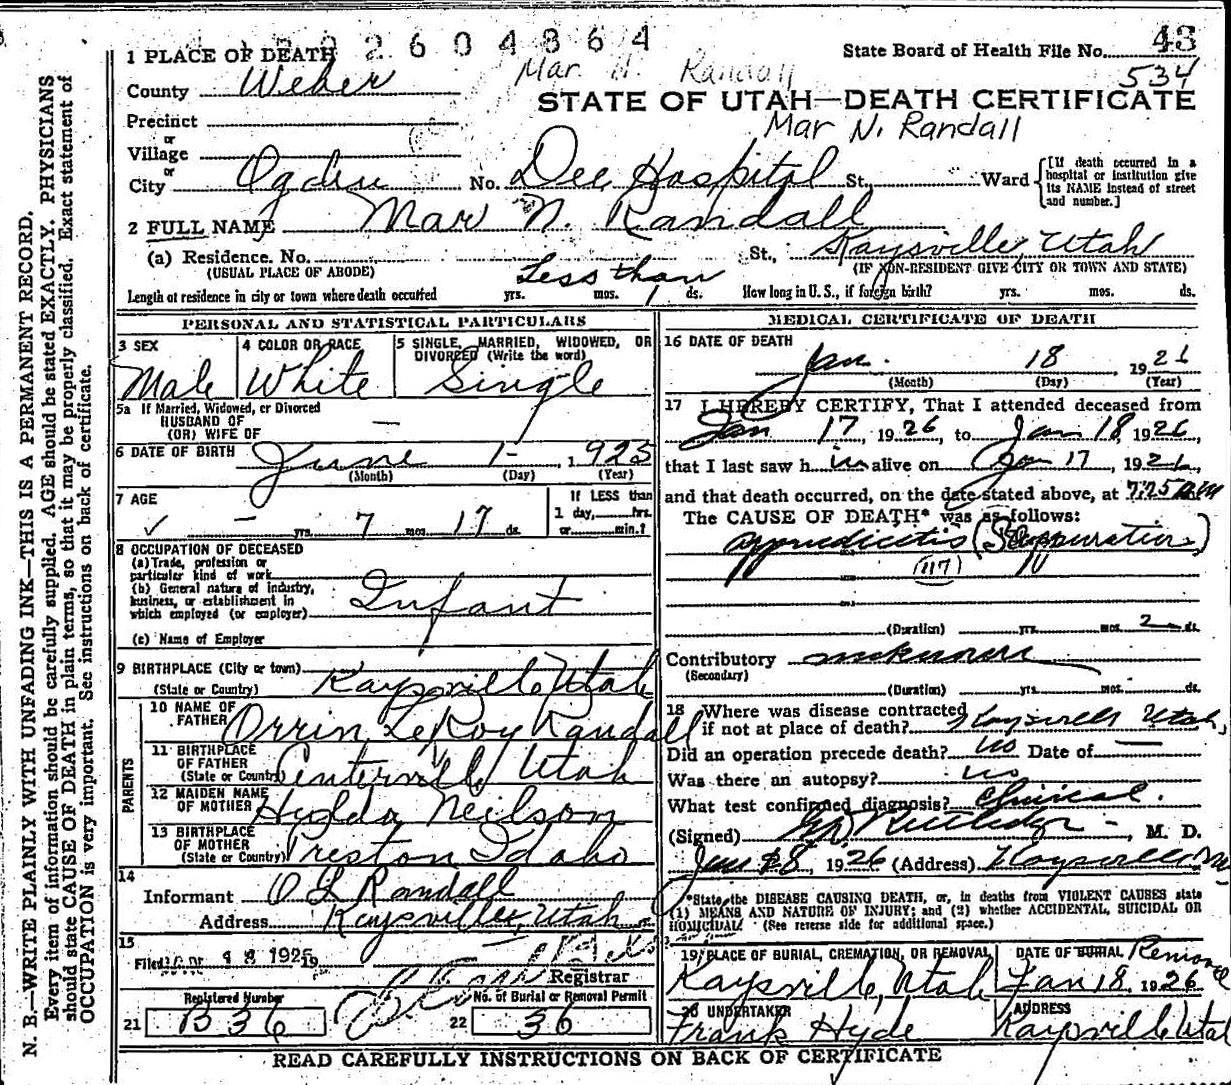 2604864
1 PLACE OF DEATH
State Board of Health File No. 43
County Weber
Mar. N. Randall
534
STATE OF UTAH—DEATH CERTIFICATE
Precinct
Mar N. Randall
or
Village
or
City Ogden No. Dee Hospital St., Ward
[If death occurred in a hospital or institution give its NAME instead of street and number.]
2 FULL NAME Mar N. Randall
(a) Residence. No. St., Kaysville, Utah
(USUAL PLACE OF ABODE) (IF NON-RESIDENT GIVE CITY OR TOWN AND STATE)
Less than
Length of residence in city or town where death occurred yrs. mos. 1 ds. How long in U. S., if foreign birth? yrs. mos. ds.
PERSONAL AND STATISTICAL PARTICULARS
3 SEX
Male
4 COLOR OR RACE
White
5 SINGLE, MARRIED, WIDOWED, OR
DIVORCED (Write the word)
Single
5a If Married, Widowed, or Divorced
HUSBAND OF
(OR) WIFE OF —
6 DATE OF BIRTH June 1- 1925
(Month) (Day) (Year)
7 AGE
✓ - yrs. 7 mos. 17 ds.
If LESS than
1 day, hrs.
or min.?
8 OCCUPATION OF DECEASED
(a) Trade, profession or
particular kind of work
(b) General nature of industry,
business, or establishment in
which employed (or employer)
Infant
(c) Name of Employer
9 BIRTHPLACE (City or town)
(State or Country) Kaysville Utah
PARENTS
10 NAME OF
FATHER Orrin LeRoy Randall
11 BIRTHPLACE
OF FATHER
(State or Country) Centerville Utah
12 MAIDEN NAME
OF MOTHER Hylda Neilson
13 BIRTHPLACE
OF MOTHER
(State or Country) Preston Idaho
14
Informant O L Randall
Address Kaysville, Utah
15
Filed 1926
Registrar
Registered Number No. of Burial or Removal Permit
21 B36 22 36
MEDICAL CERTIFICATE OF DEATH
16 DATE OF DEATH
Jan. 18 1926
(Month) (Day) (Year)
17 I HEREBY CERTIFY, That I attended deceased from
Jan 17, 1926, to Jan 18 1926,
that I last saw h im alive on Jan 17, 1926,
and that death occurred, on the date stated above, at 7:25 am
The CAUSE OF DEATH* was as follows:
Appendicitis (Suppurative)
(117)
(Duration) yrs. mos. 2 ds.
Contributory unknown
(Secondary)
(Duration) yrs. mos. ds.
18 Where was disease contracted
if not at place of death? Kaysville Utah,
Did an operation precede death? no Date of —
Was there an autopsy? no
What test confirmed diagnosis? Clinical.
(Signed) Rutledge, M. D.
Jan 18, 1926 (Address) Kaysville
*State the DISEASE CAUSING DEATH, or, in deaths from VIOLENT CAUSES state
(1) MEANS AND NATURE OF INJURY; and (2) whether ACCIDENTAL, SUICIDAL OR
HOMICIDAL. (See reverse side for additional space.)
19 PLACE OF BURIAL, CREMATION, OR REMOVAL
Kaysville, Utah
DATE OF BURIAL Remove
Jan 18. 1926
20 UNDERTAKER
Frank Hyde
ADDRESS
Kaysville Utah
READ CAREFULLY INSTRUCTIONS ON BACK OF CERTIFICATE
N. B.—WRITE PLAINLY WITH UNFADING INK—THIS IS A PERMANENT RECORD.
Every item of information should be carefully supplied. AGE should be stated EXACTLY. PHYSICIANS
should state CAUSE OF DEATH in plain terms, so that it may be properly classified. Exact statement of
OCCUPATION is very important. See instructions on back of certificate.